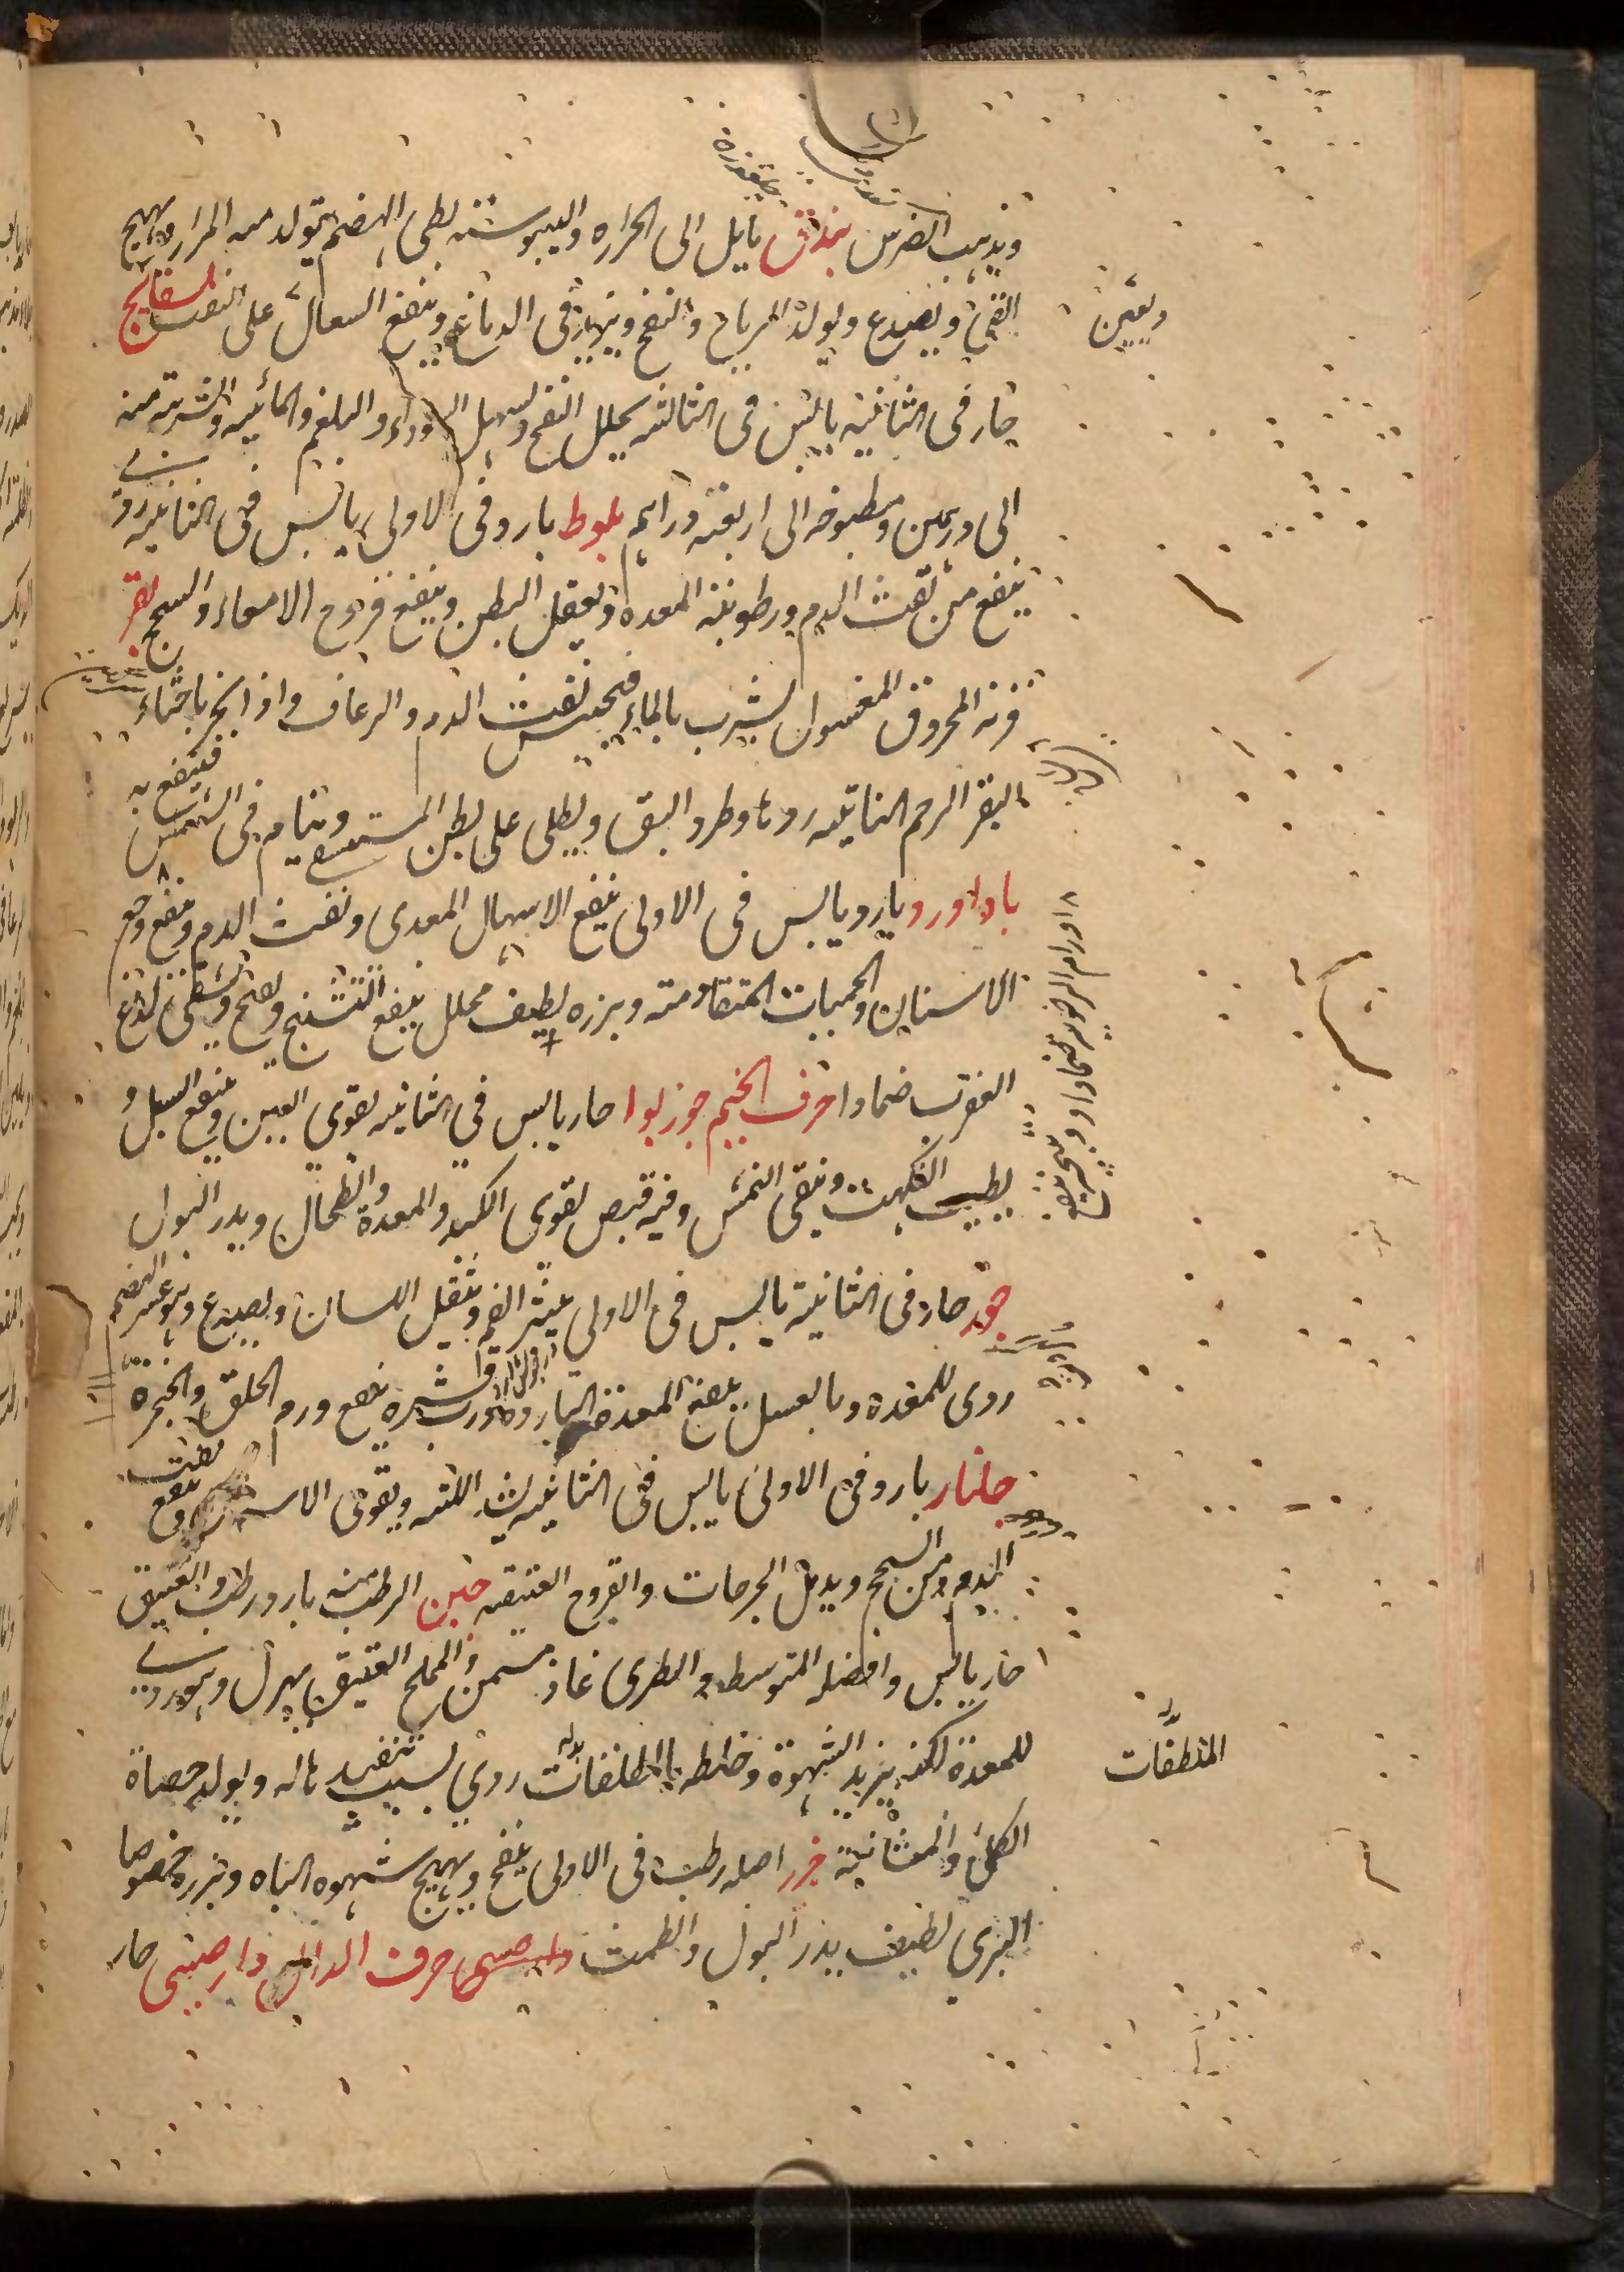 ويذهب الضرس بندق مايل الى الحراره واليبوسته بطى الهضم يتولد منه المرار ويهيج
القى ويصدع ويولد الرياح والنفخ ويزيد فى الدماغ وينفع السعال على النفث بسفايج
ويعين
حار فى الثانيه يابس فى الثالثه يحلل النفخ ويسهل السوداء والبلغم والمائيه والشربته منه
الى درهمين ومطبوخه الى اربعته دراهم بلوط بارد فى الاولى يابس فى الثانيه ردى
ينفع من نفث الدم ورطوبته المعده ويعقل البطن وينفع قروح الامعاء والسحج بقر
قرنه المحروق المغسول يشرب بالماء فيحبس نفث الدم والرعاف واذا بخر باخثاء
البقر الرحم الناتيه ردها وطرد البق ويطلى على بطن المستسقى وينام فى الشمس
فينتفع به
باداورد بارد يابس فى الاولى ينفع الاسهال المعدى ونفث الدم وينفع وجع
الاسنان والحميات المتقادمته وبزره لطيف محلل ينفع التشنج ولدغ
العقرب ضمادا حرف الجيم جوزبوا حار يابس فى الثانيه يقوى العين وينفع السبل و
يطيب النكهت وينقى النمش وفيه قبض يقوى الكبد والمعدة والطحال ويدر البول
جوز حار فى الثانيته يابس فى الاولى يبثر الفم ويثقل اللسان ويصدع وهو عسر الهضم
ردى للمعدة وبالعسل ينفع المعدة البارده ورب قشره ينفع ورم الحلق والحنجرة
جلنار بارد فى الاولى يابس فى الثانيه يشد اللثه ويقوى الاسنان وينفع نفث
الدم ومن السحج ويدمل الجرحات والقروح العتيقه جبن الرطب منه بارد رطب والعتيق
حار يابس وافضله المتوسط والطرى غاذ مسمن والمملح العتيق يهزل وهو ردى
للمعدة لكنه يزيد الشهوة وخلطه بالملطفات ردى بسبب تنفيذ ها له ويولد حصاة
الملطفات
الكلى والمثانية جزر اصله رطب فى الاولى ينفخ ويهيج شهوه الباه وبزره خصوصا
البرى لطيف يدر البول والطمث حرف الدال دارصينى حار